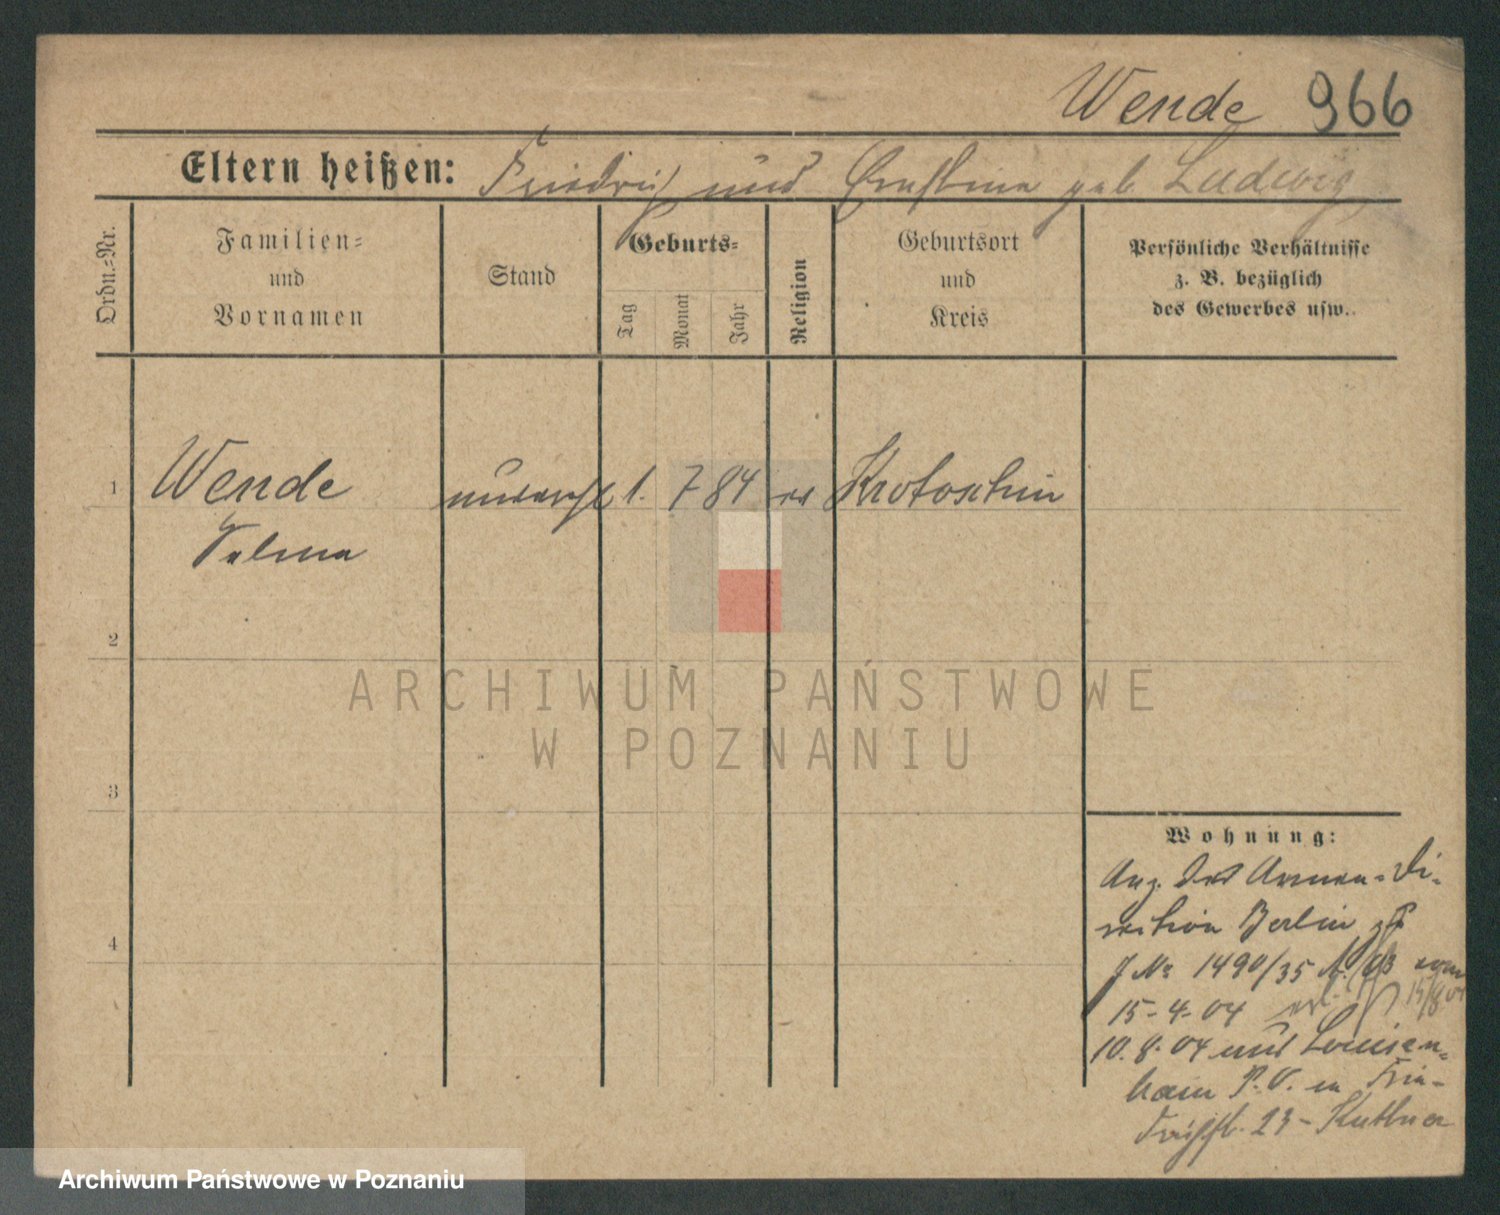 Wende 966
Eltern heißen: Friedrich und Ernstine geb Ludwig
Ordn.-Nr.
Familien-
und
Vornamen
Stand
Geburts-
Tag
Monat
Jahr
Religion
Geburtsort
und
Kreis
Persönliche Verhältnisse
z. B. bezüglich
des Gewerbes usw..
1 Wende unverehl 1. 7 84 ev Krotoschin
Selma
2
3
4
ARCHIWUM PAŃSTWOWE
W POZNANIU
Wohnung:
Anz. der Armen-Di-
rektion Berlin
J No 1490/35 vom
15-4-04 15/8 04
10.8.04 Louisen-
hain P.V. Frie-
drichstr. 23 - Kuttner
Archiwum Państwowe w Poznaniu